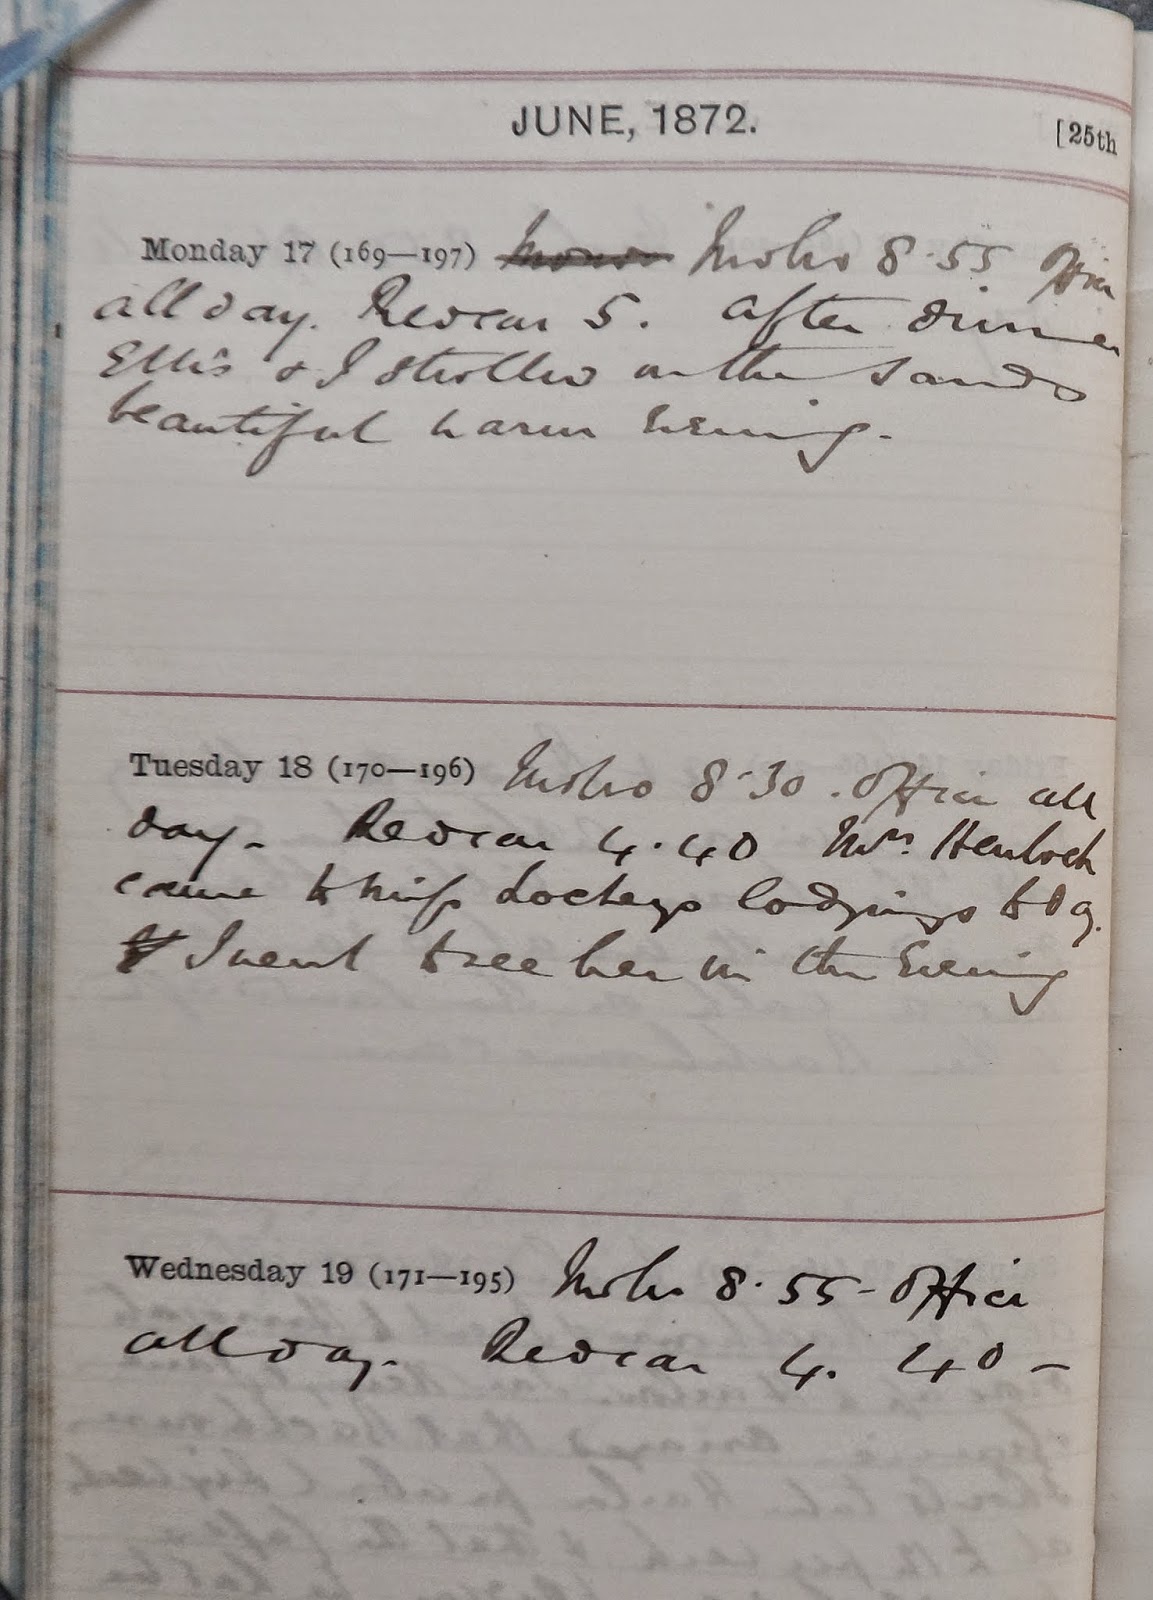 JUNE, 1872. [25th
Monday 17 (169—197) Mbro 8.55 Office
all day. Redcar 5. after dinner
Ellis & I strolled on the Sands
beautiful warm Evening.
Tuesday 18 (170—196) Mbro 8.30. Office all
day. Redcar 4.40 Mrs.
came to Miss lodgings to
I went to see her in the Evening
Wednesday 19 (171—195) Mbro 8.55 - Office
all day. Redcar 4.40 —